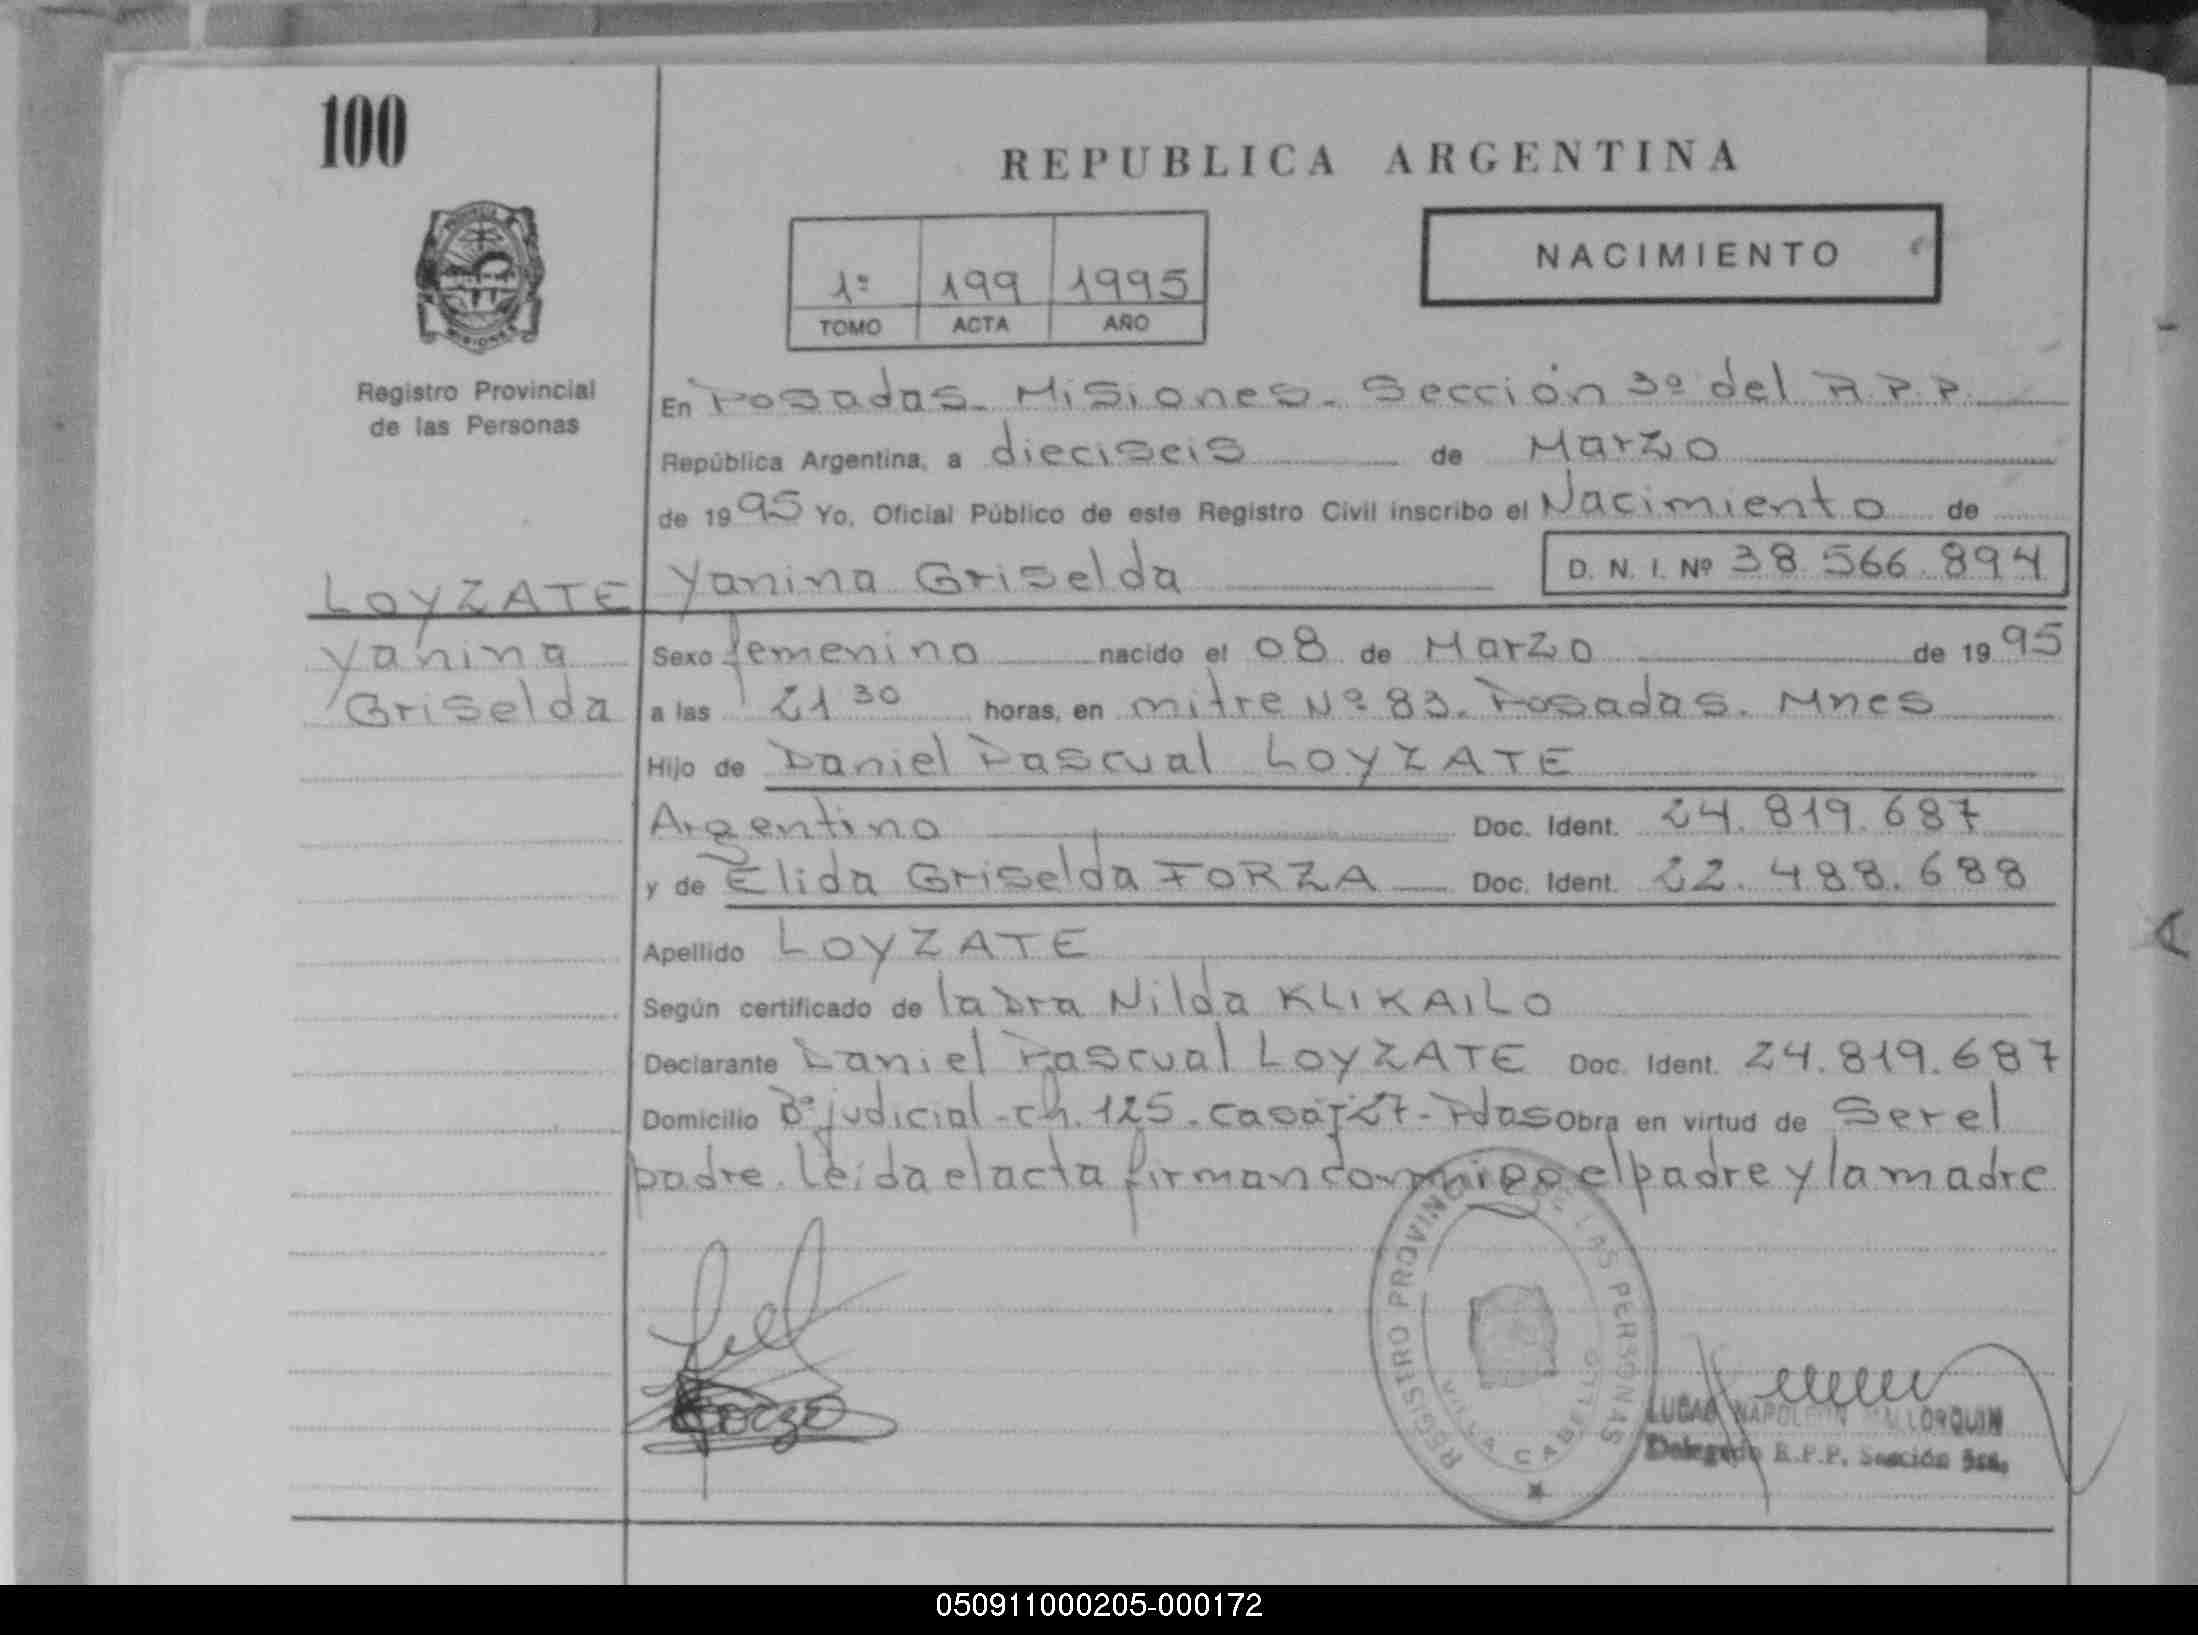 100
REPUBLICA ARGENTINA
NACIMIENTO
1º 199 1995
TOMO ACTA AÑO
Registro Provincial
de las Personas
En Posadas. Misiones. Sección 3º del R.P.P.
República Argentina, a dieciseis de Marzo
de 1995 Yo, Oficial Público de este Registro Civil inscribo el Nacimiento de
Yanina Griselda D. N. I. Nº 38.566.894
LOYZATE
Yanina
Griselda
Sexo femenino nacido el 08 de Marzo de 1995
a las 21 30 horas, en mitre Nº 83. Posadas. Mnes
Hijo de Daniel Pascual LOYZATE
Argentino Doc. Ident. 24.819.687
y de Elida Griselda FORZA Doc. Ident. 22.488.688
Apellido LOYZATE
Según certificado de la Dra Nilda KLIKAILO
Declarante Daniel Pascual LOYZATE Doc. Ident. 24.819.687
Domicilio Bº judicial - ch. 125. casa 27 - Pdas Obra en virtud de Ser el
padre. Leida el acta firman conmigo el padre y la madre
REGISTRO PROVINCIAL DE LAS PERSONAS
VILLA CABELLO
LUCAS NAPOLEON MALLORQUIN
Delegado R.P.P. Sección 3ra.
050911000205-000172